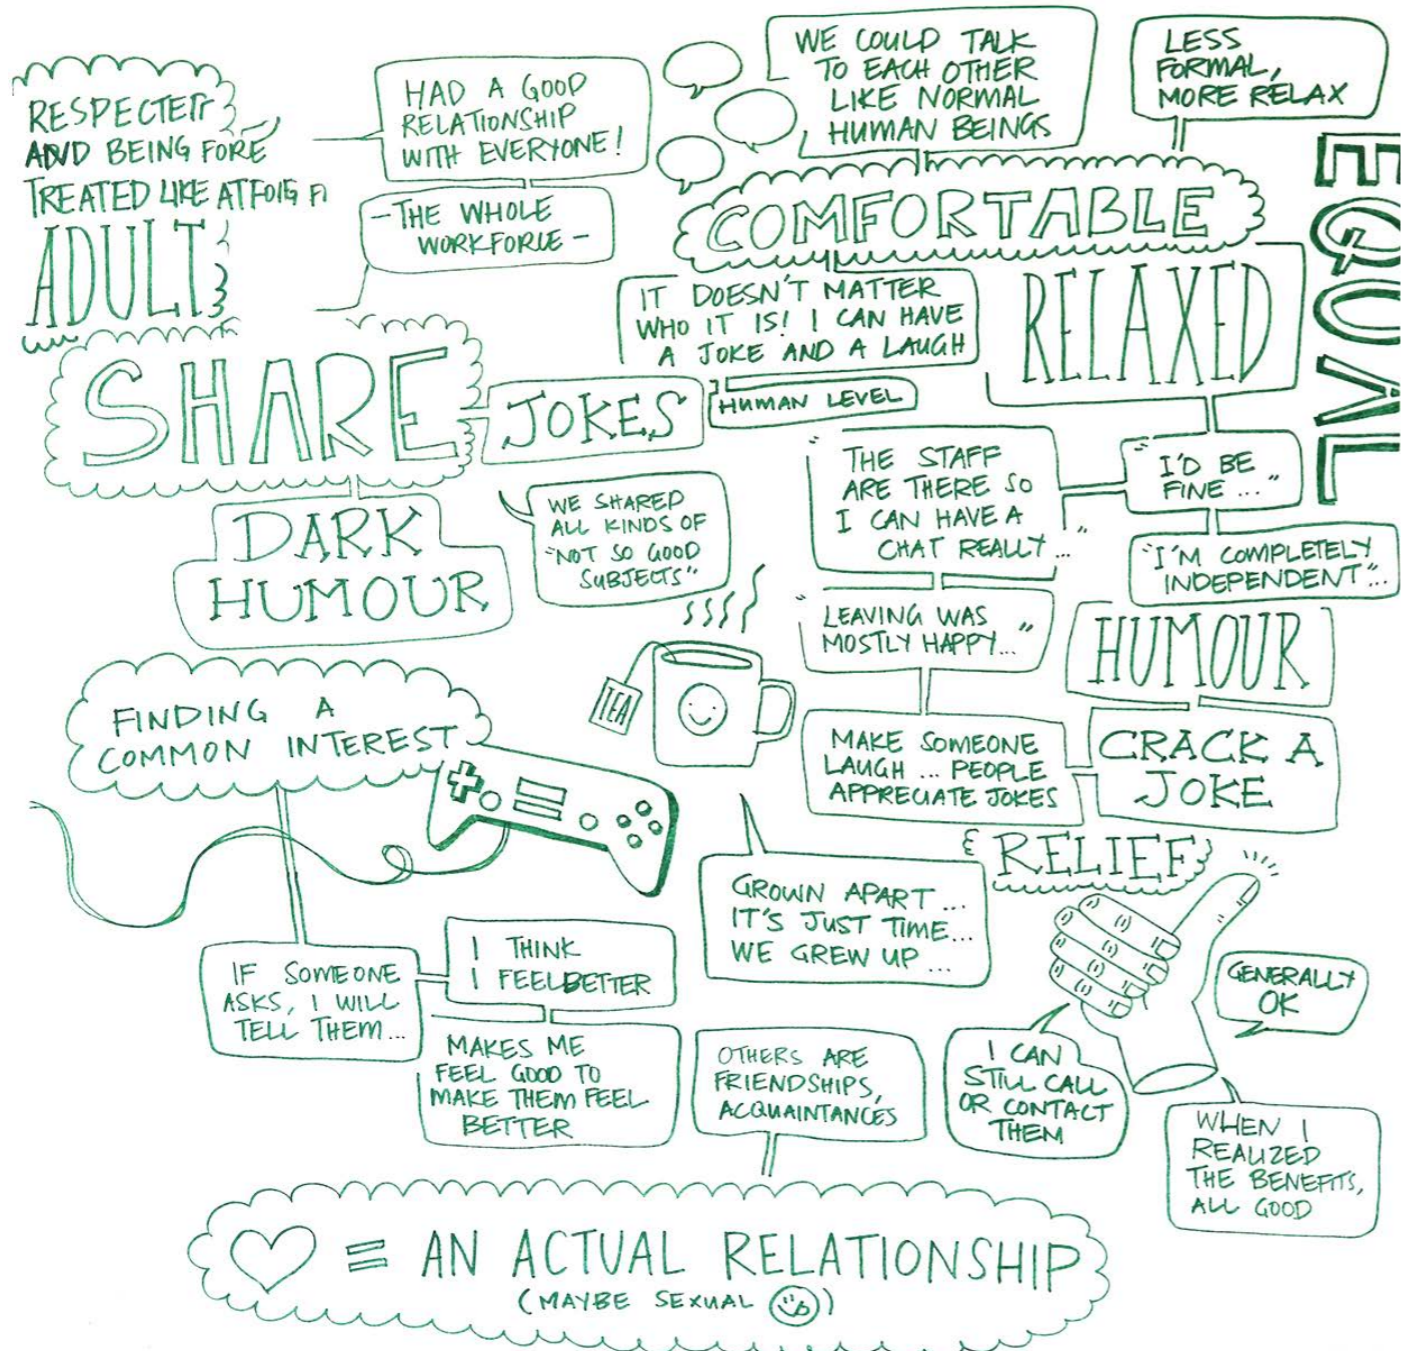 RESPECTED
AND BEING
TREATED LIKE
ADULT
HAD A GOOD
RELATIONSHIP
WITH EVERYONE!
-THE WHOLE
WORKFORCE-
WE COULD TALK
TO EACH OTHER
LIKE NORMAL
HUMAN BEINGS
LESS
FORMAL,
MORE RELAX
EQUAL
COMFORTABLE
RELAXED
IT DOESN'T MATTER
WHO IT IS! I CAN HAVE
A JOKE AND A LAUGH
HUMAN LEVEL
SHARE
JOKES
DARK
HUMOUR
WE SHARED
ALL KINDS OF
"NOT SO GOOD
SUBJECTS"
"THE STAFF
ARE THERE SO
I CAN HAVE A
CHAT REALLY..."
"I'D BE
FINE..."
"I'M COMPLETELY
INDEPENDENT"...
"LEAVING WAS
MOSTLY HAPPY..."
HUMOUR
MAKE SOMEONE
LAUGH... PEOPLE
APPRECIATE JOKES
CRACK A
JOKE
RELIEF
TEA
FINDING A
COMMON INTEREST
GROWN APART...
IT'S JUST TIME...
WE GREW UP...
IF SOMEONE
ASKS, I WILL
TELL THEM...
I THINK
I FEEL BETTER
MAKES ME
FEEL GOOD TO
MAKE THEM FEEL
BETTER
OTHERS ARE
FRIENDSHIPS,
ACQUAINTANCES
I CAN
STILL CALL
OR CONTACT
THEM
GENERALLY
OK
WHEN I
REALIZED
THE BENEFITS,
ALL GOOD
= AN ACTUAL RELATIONSHIP
(MAYBE SEXUAL )